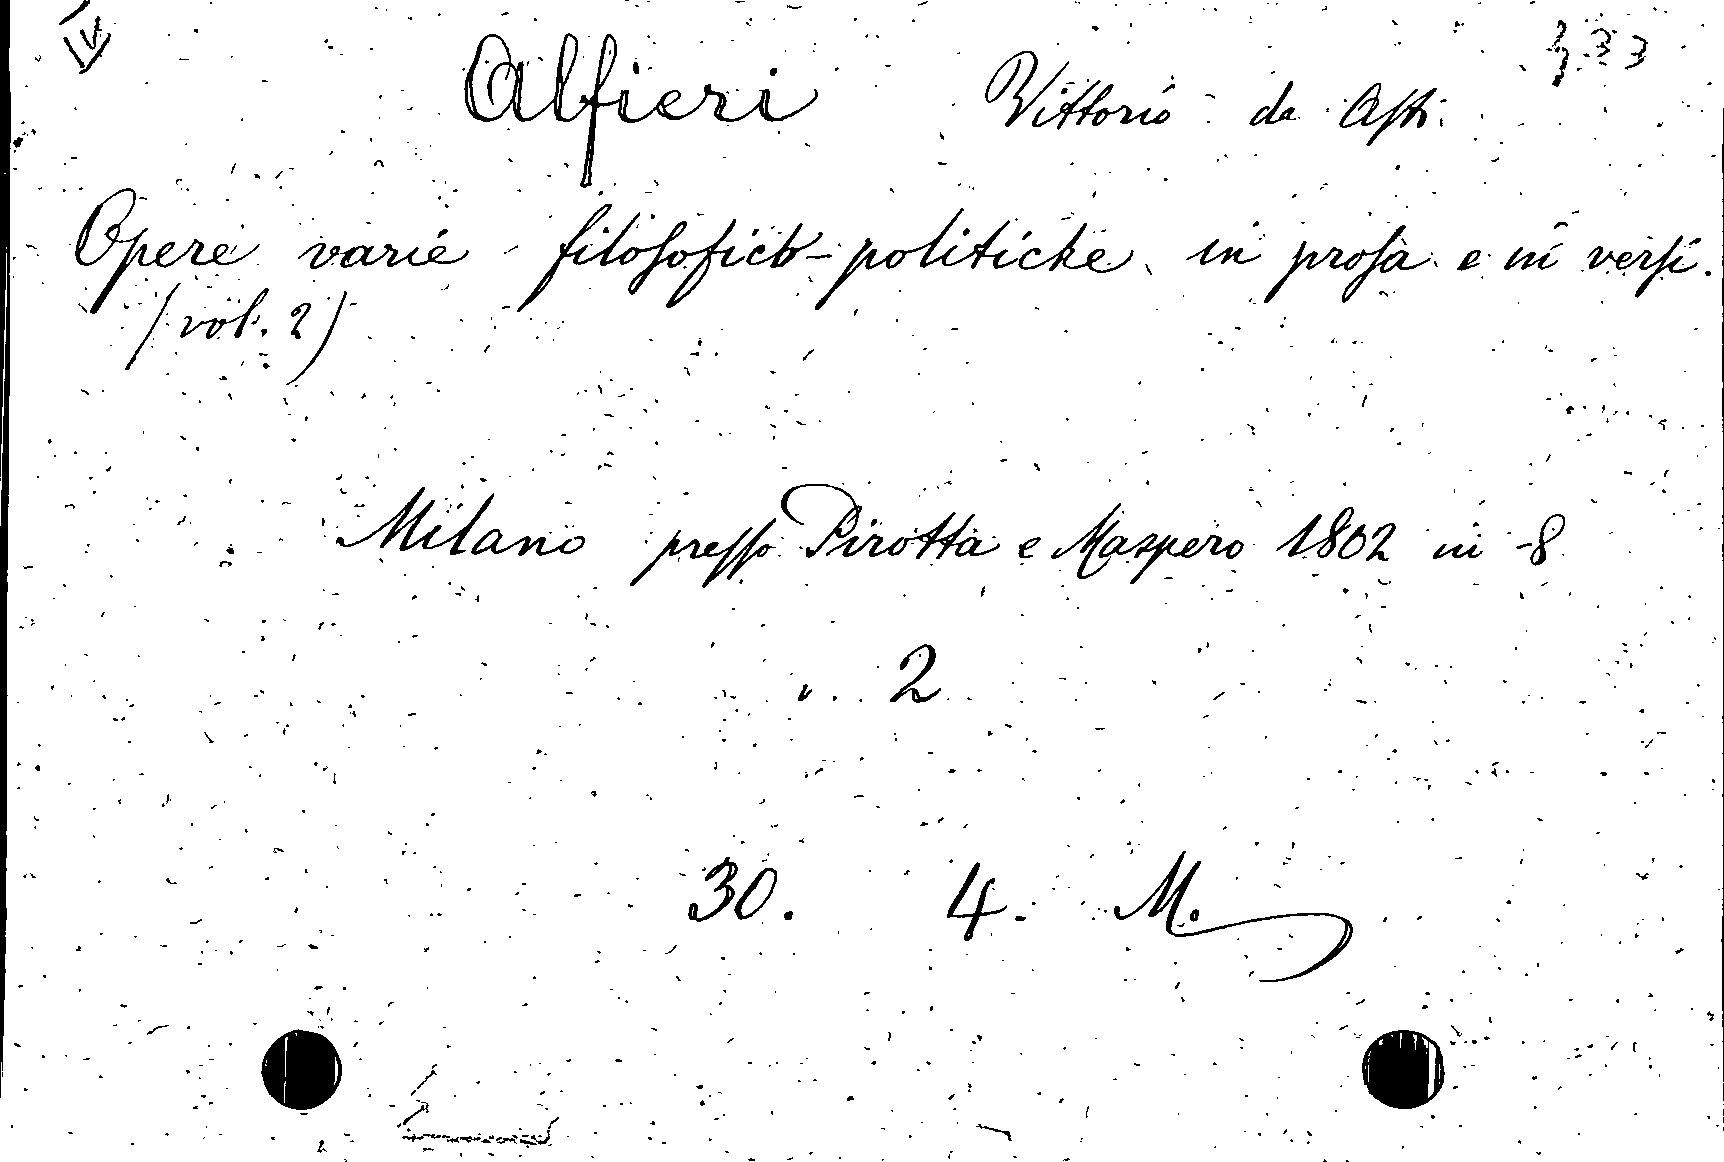 Alfieri Vittorio da Asti.
Opere varie filosofico-politiche in prosa e in versi.
(vol. 2)
Milano presso Pirotta e Maspero 1802 in -8
v. 2
30. 4. M.